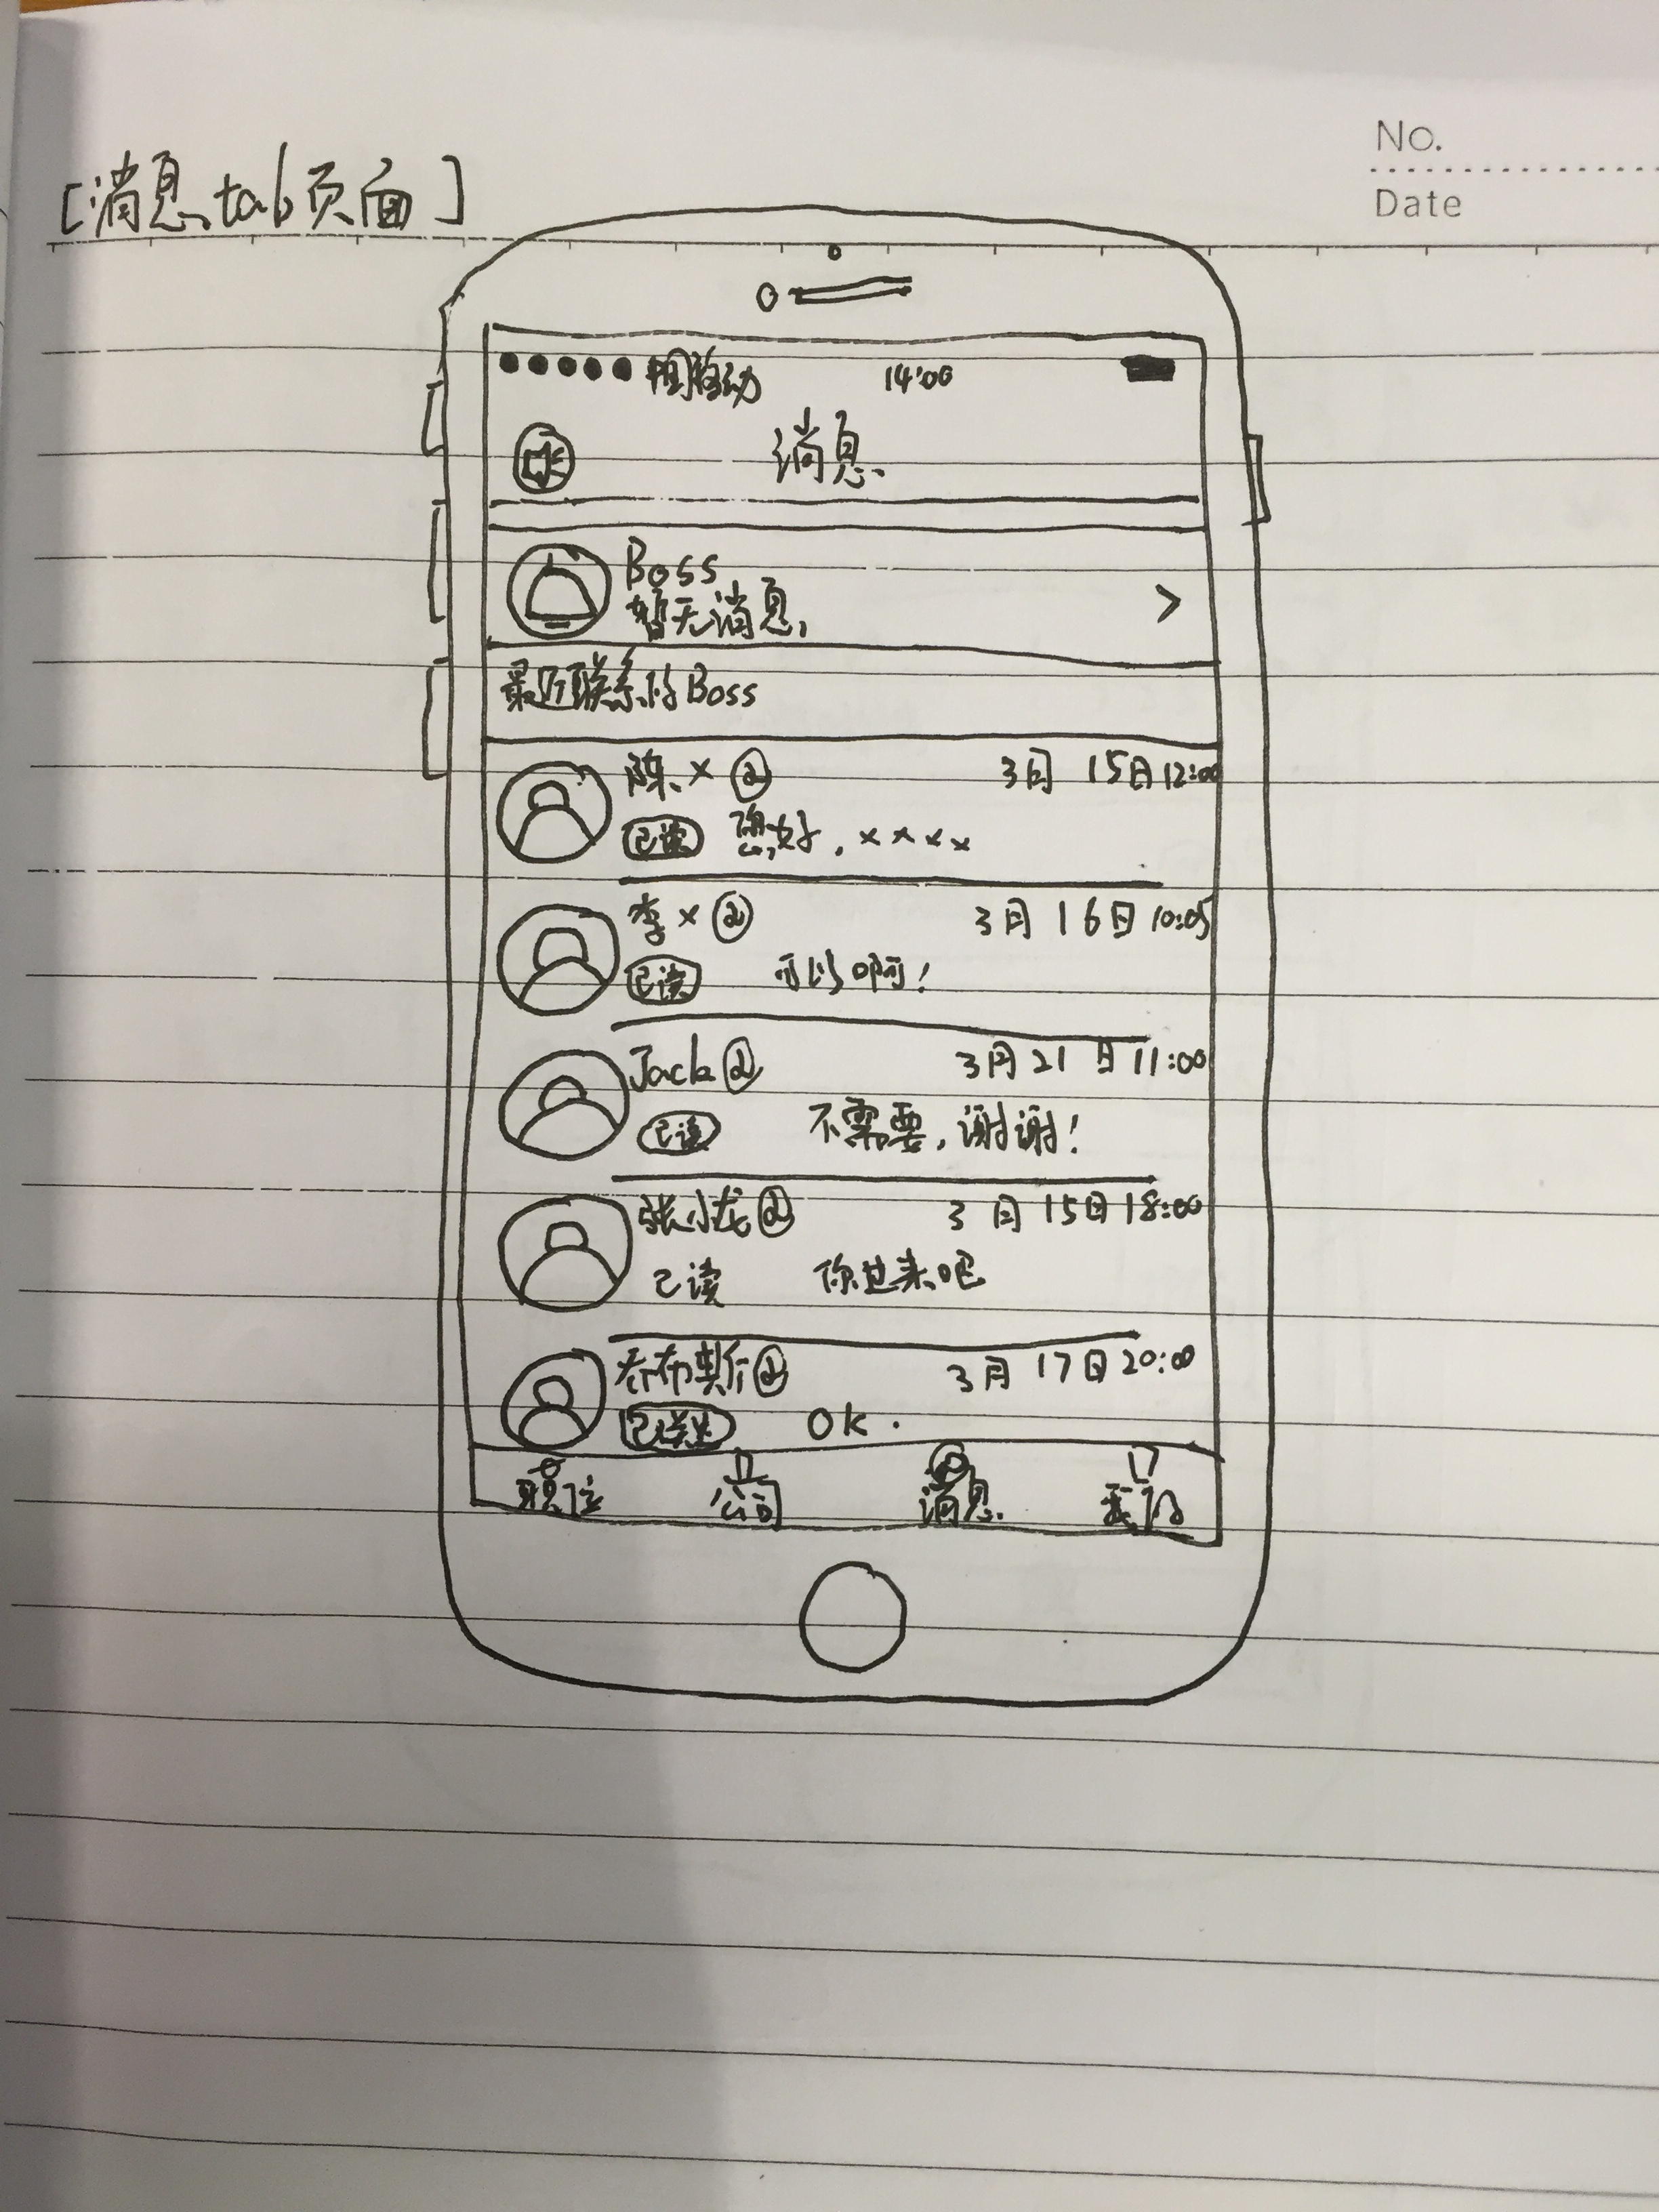 No.
Date
[消息tab页面]
中国移动 14:00
消息
Boss
暂无消息
最近联系的Boss
陈× 3月15日12:00
已读 您好，××××
李× 3月16日10:05
已读 可以啊！
Jack 3月21日11:00
已读 不需要，谢谢！
张小龙 3月15日18:00
已读 你过来吧
乔布斯 3月17日20:00
OK.
职位 公司 消息 我的